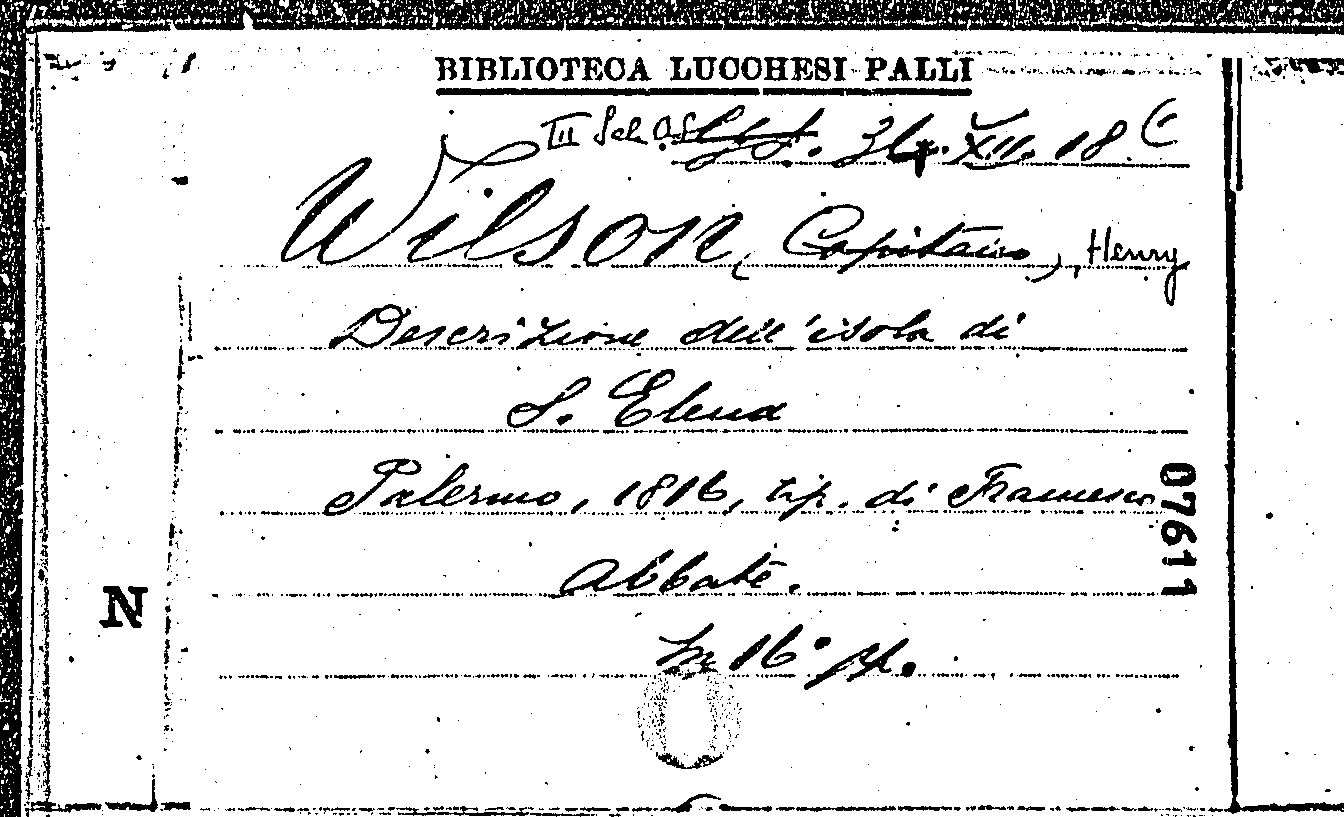 BIBLIOTECA LUCCHESI PALLI
III XII. 18
Wilson (Capitano), Henry
Descrizione dell'isola di
S. Elena
Palermo, 1816, tip. di Francesco
Abbate.
In 16° pp.
07611
N